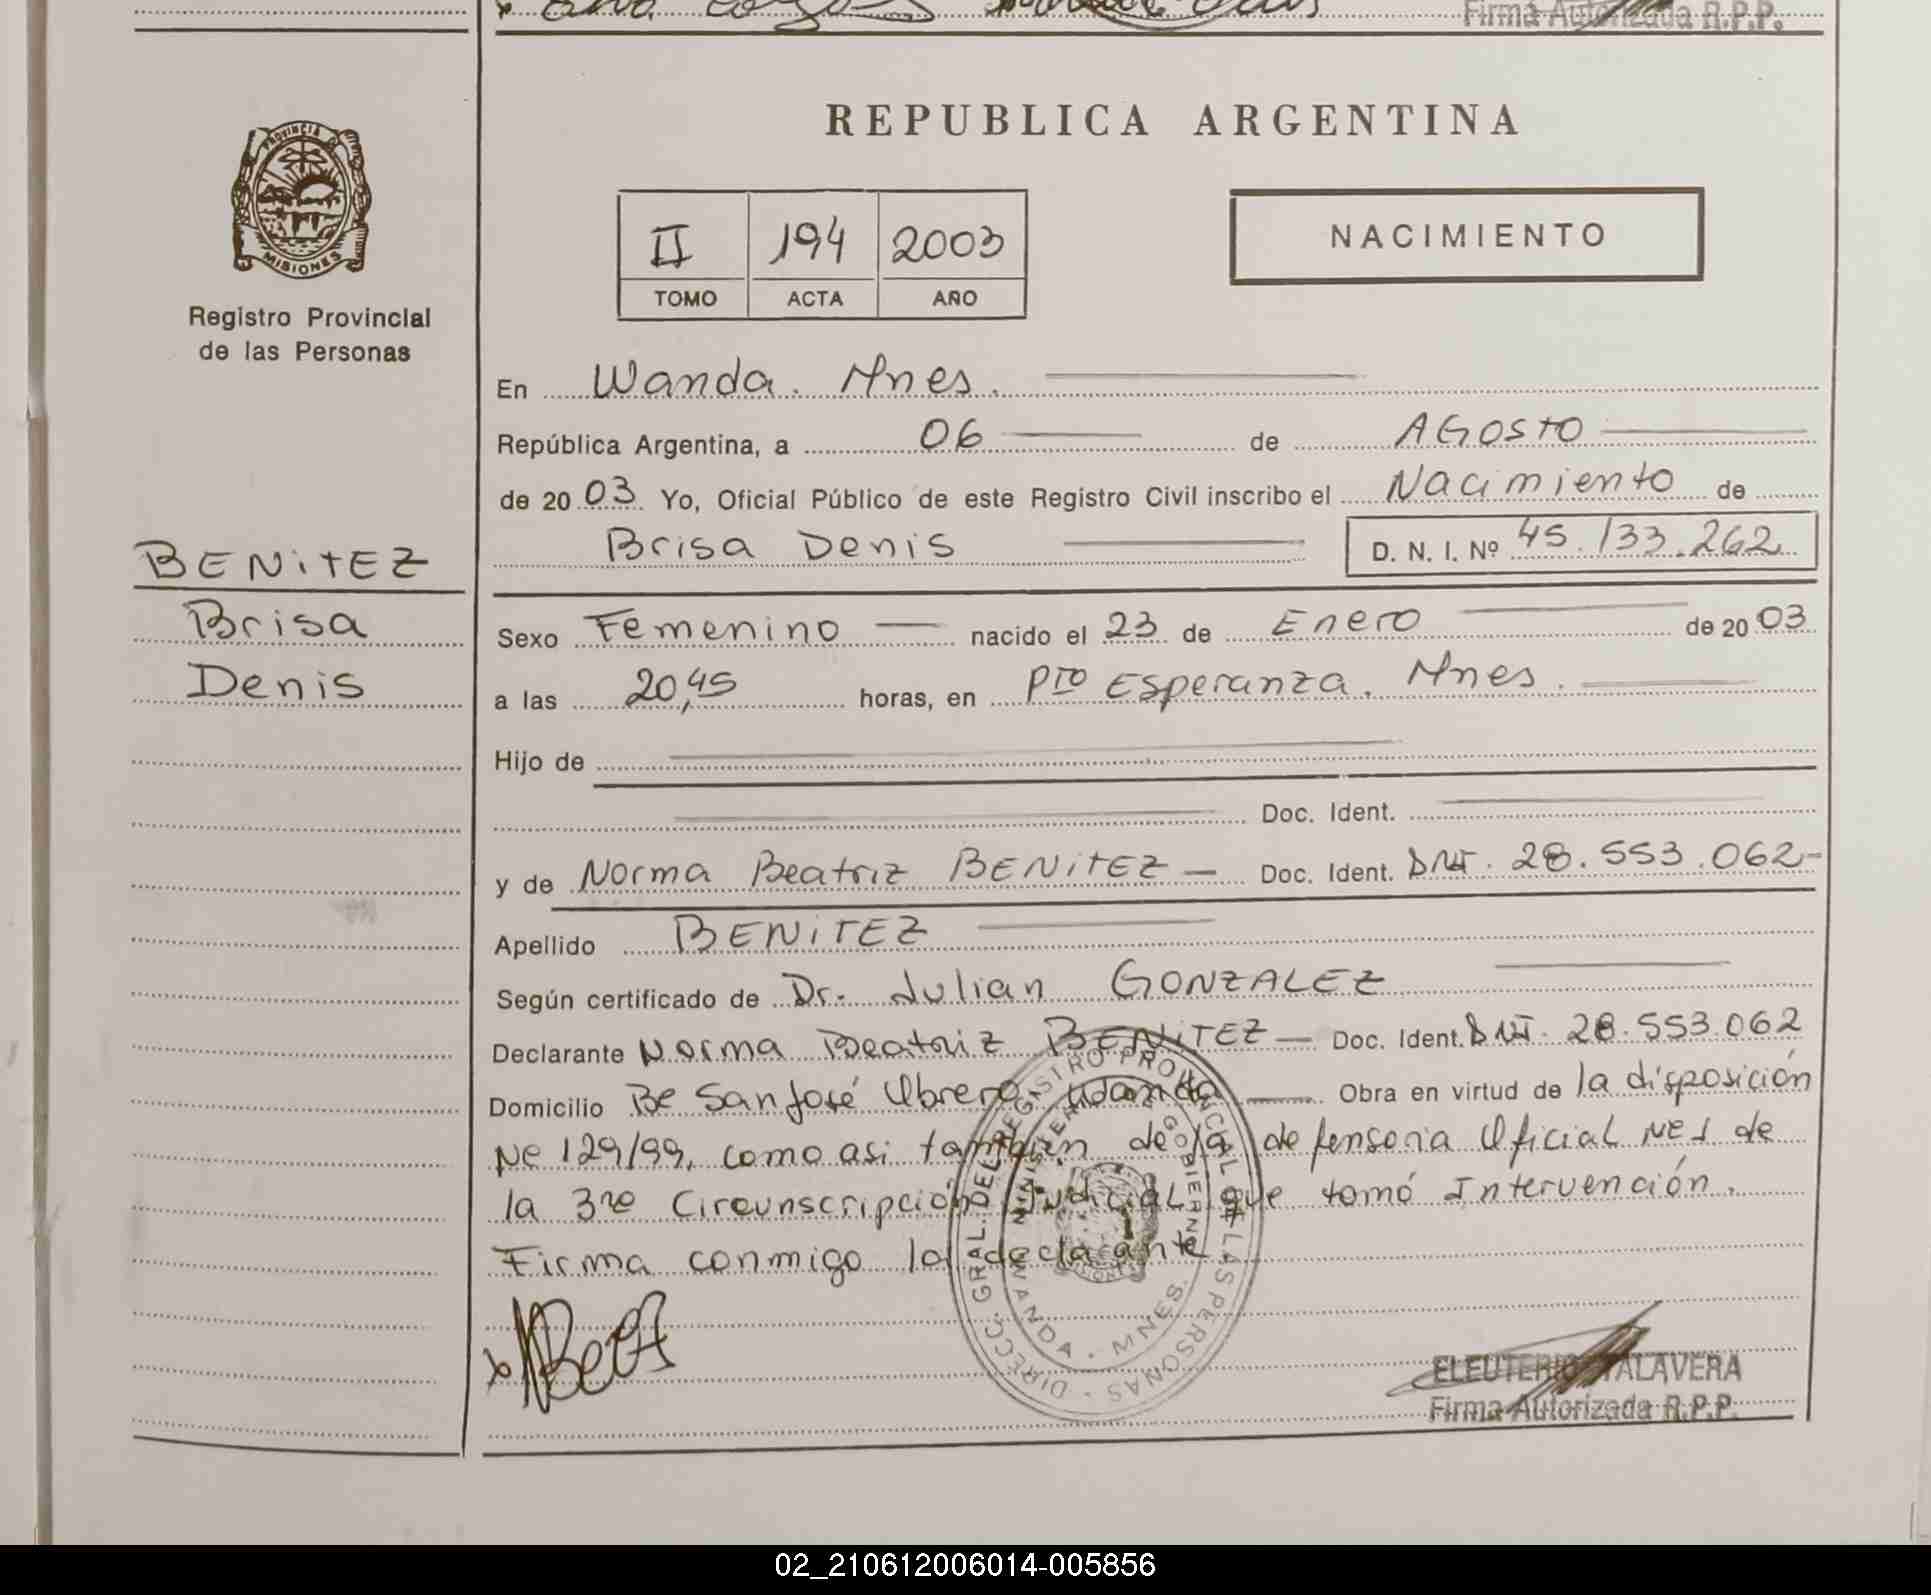 Firma Autorizada R.P.P.
PROVINCIA
MISIONES
Registro Provincial
de las Personas
BENITEZ
Brisa
Denis
REPUBLICA ARGENTINA
II 194 2003
TOMO ACTA AÑO
NACIMIENTO
En Wanda. Mnes.
República Argentina, a 06 de AGOSTO
de 2003 Yo, Oficial Público de este Registro Civil inscribo el Nacimiento de
Brisa Denis D. N. I. Nº 45.133.262
Sexo Femenino nacido el 23 de Enero de 2003
a las 20,45 horas, en Pto Esperanza. Mnes.
Hijo de
Doc. Ident.
y de Norma Beatriz BENITEZ Doc. Ident. DNI. 28.553.062
Apellido BENITEZ
Según certificado de Dr. Julian GONZALEZ
Declarante Norma Beatriz BENITEZ Doc. Ident. DNI. 28.553.062
Domicilio Bº San José Obrero, Wanda Obra en virtud de la disposición
Nº 129/99, como asi también de la defensoria Oficial Nº 1 de
la 3ra Circunscripción Judicial que tomó Intervención.
Firma conmigo la declarante
DIRECC. GRAL. DEL REGISTRO PROVINCIAL DE LAS PERSONAS
MINISTERIO GOBIERNO
WANDA - MNES.
ELEUTERIO TALAVERA
Firma Autorizada R.P.P.
02_210612006014-005856